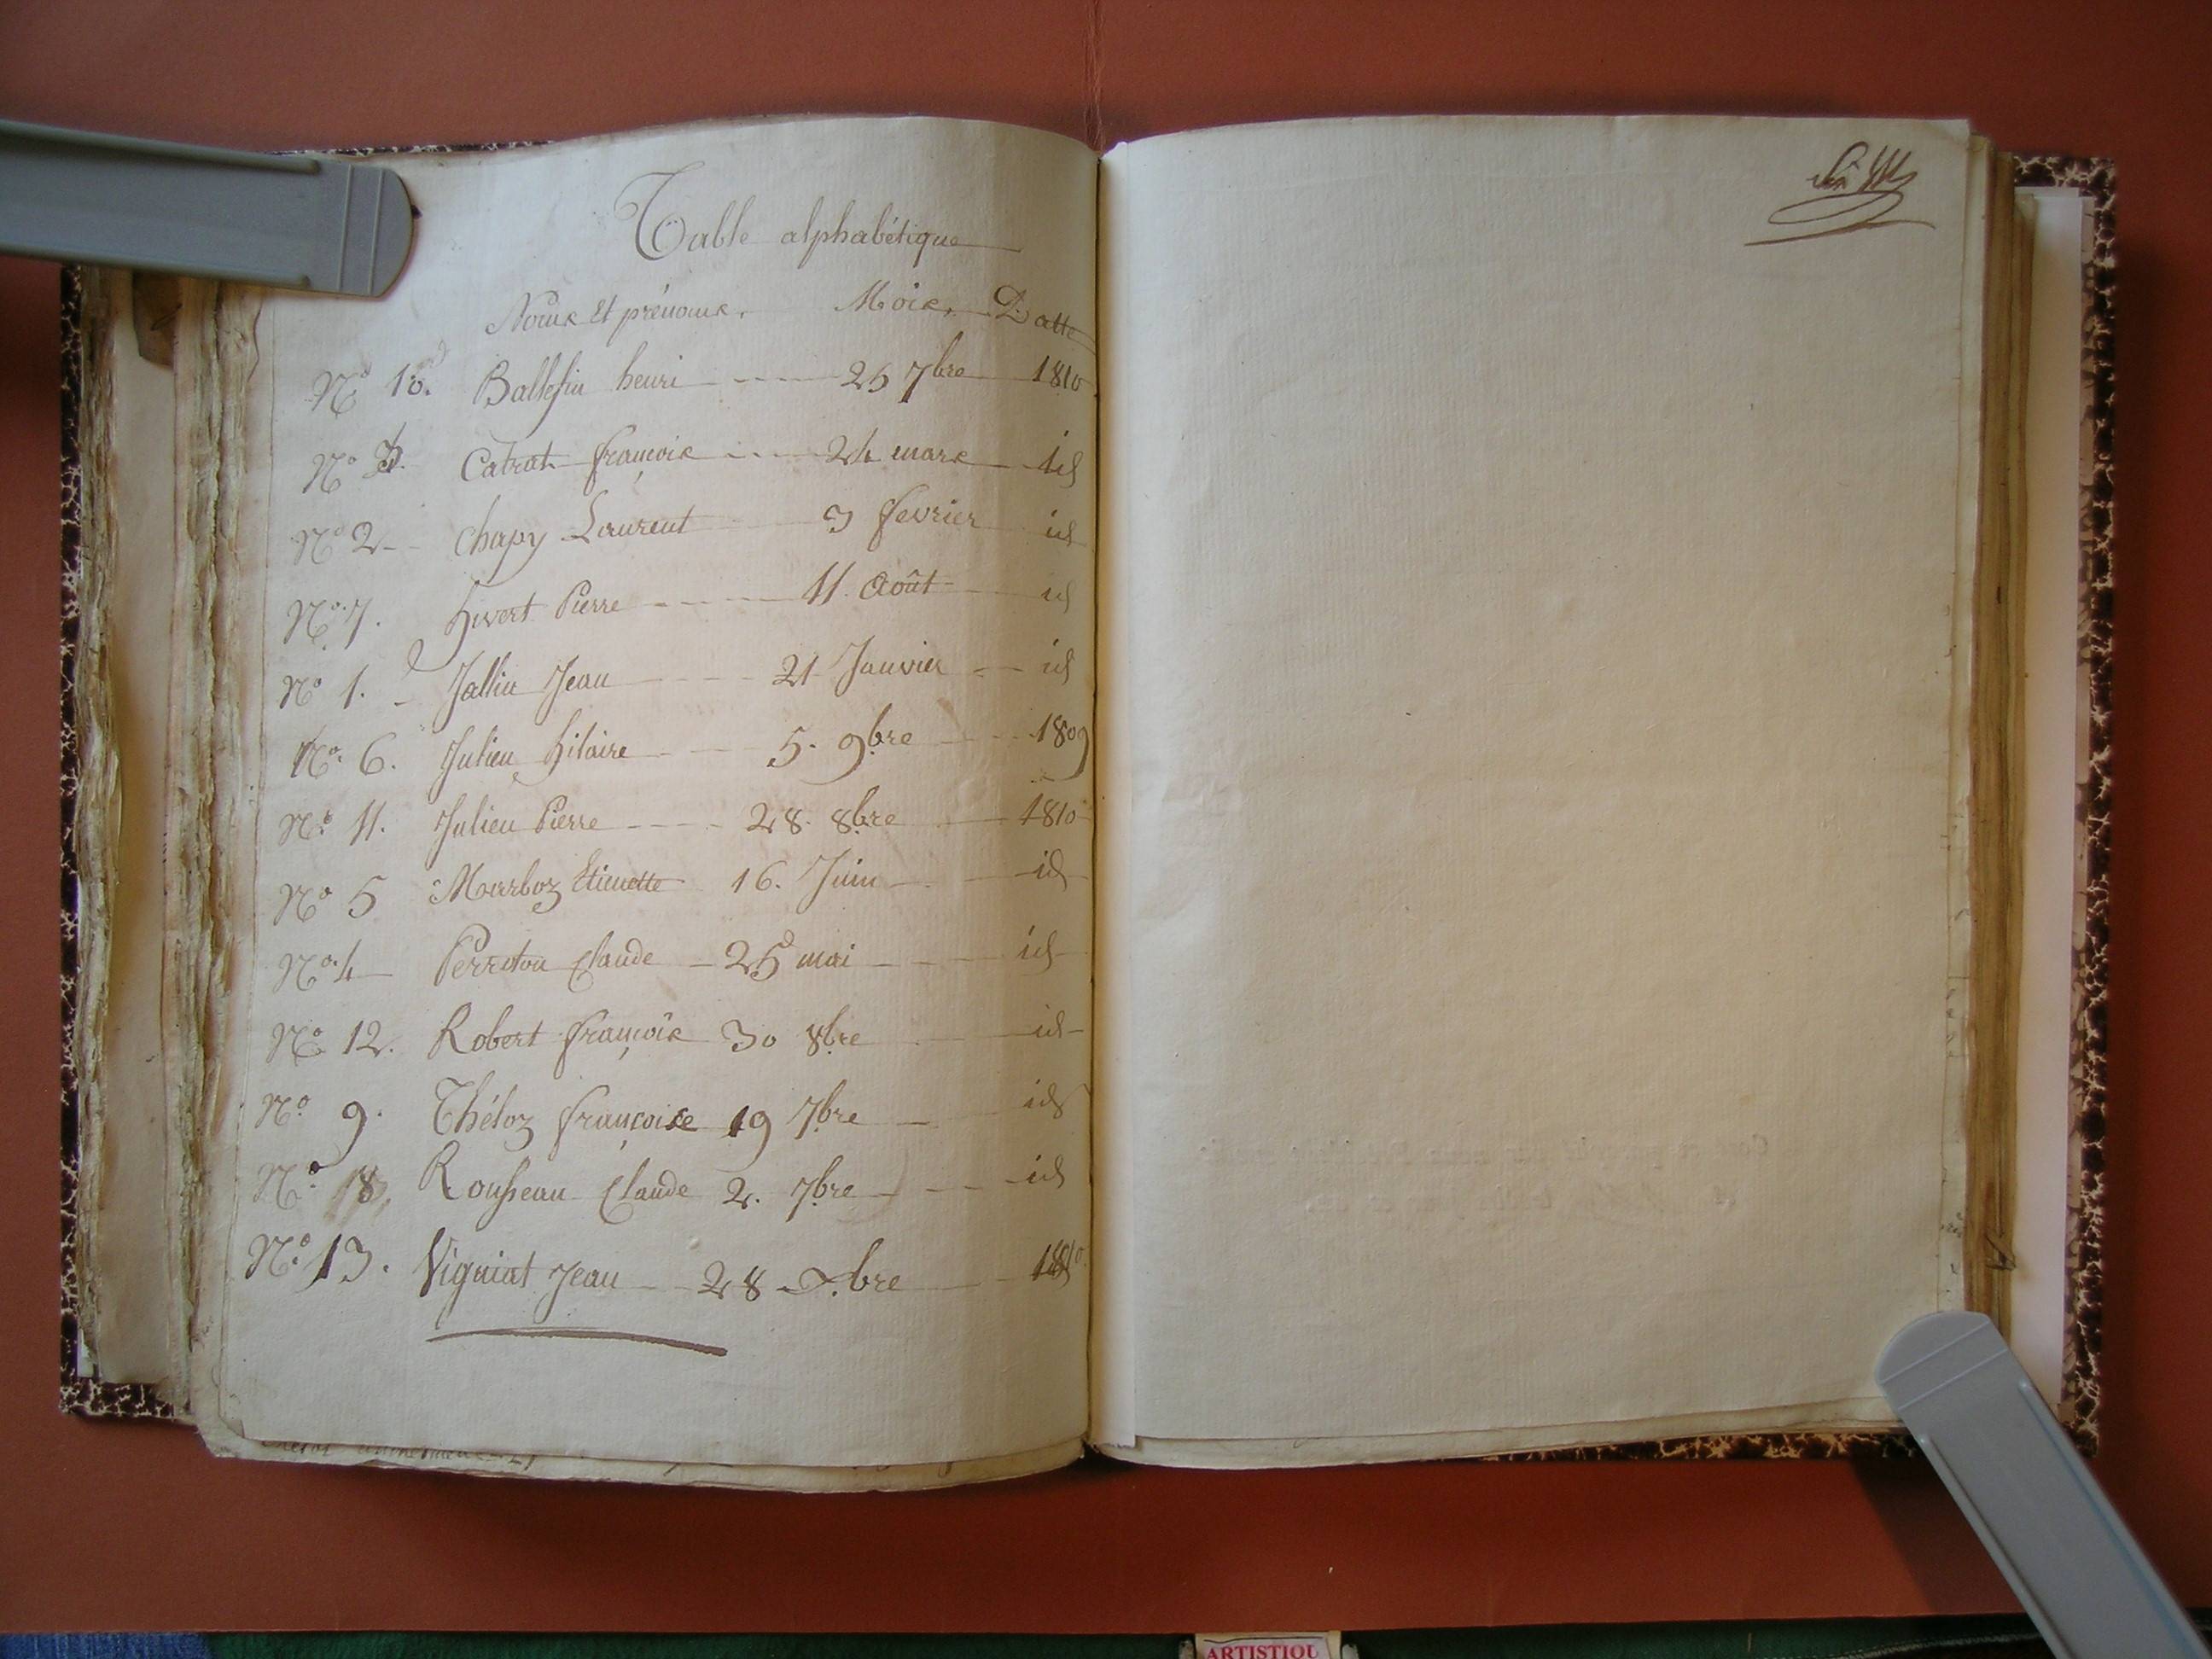 Table alphabétique
Noms Et prénoms. Mois. Datte
No 10. Ballefin henri 25 7bre 1810
No 3. Catrat françois 24 mars id
No 2 Chapy Laurent 3 fevrier id
No 7. hivert Pierre 11. Août id
No 1. Jallin Jean 21 Janvier id
No 6. Julien hilaire 5. 9bre 1809
No 11. Julien Pierre 28. 8bre 1810
No 5 Marboz Etienette 16. Juin id
No 4 Perroton Claude 25 mai id
No 12. Robert françois 30 8bre id
No 9. Théloz francoise 19 7bre id
No 8. Rousseau Claude 2. 7bre id
No 13. Vigniat Jean 28 Xbre 1810
ARTISTIQU